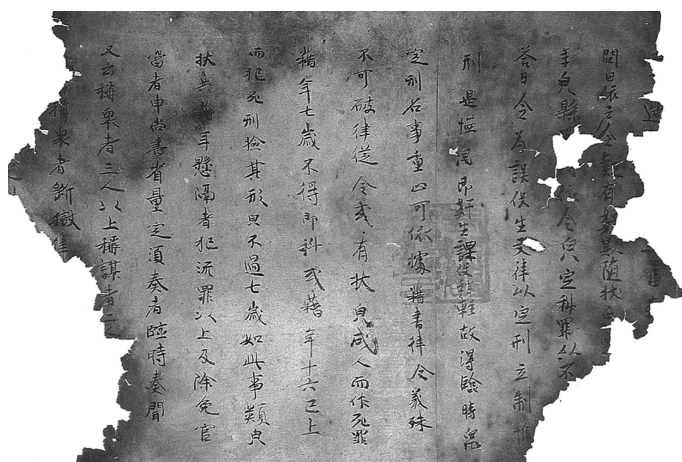 問曰依令
年皃縣 令皃定科罪以不
答曰令為課役生文律以定刑立制惟
刑是恒況即奸生課役稍輕故得臨時皃
定刑名事重止可依據籍書律令義殊
不可破律從令或有狀皃成人而作死罪
籍年七歲不得即科或籍年十六已上
而犯死刑檢其形皃不過七歲如此事類皃
狀共籍年懸隔者犯流罪以上及除免官
當者申尚書省量定須奏者臨時奏聞
又云稱眾者三人以上稱謀者二
稱眾者斷獄律